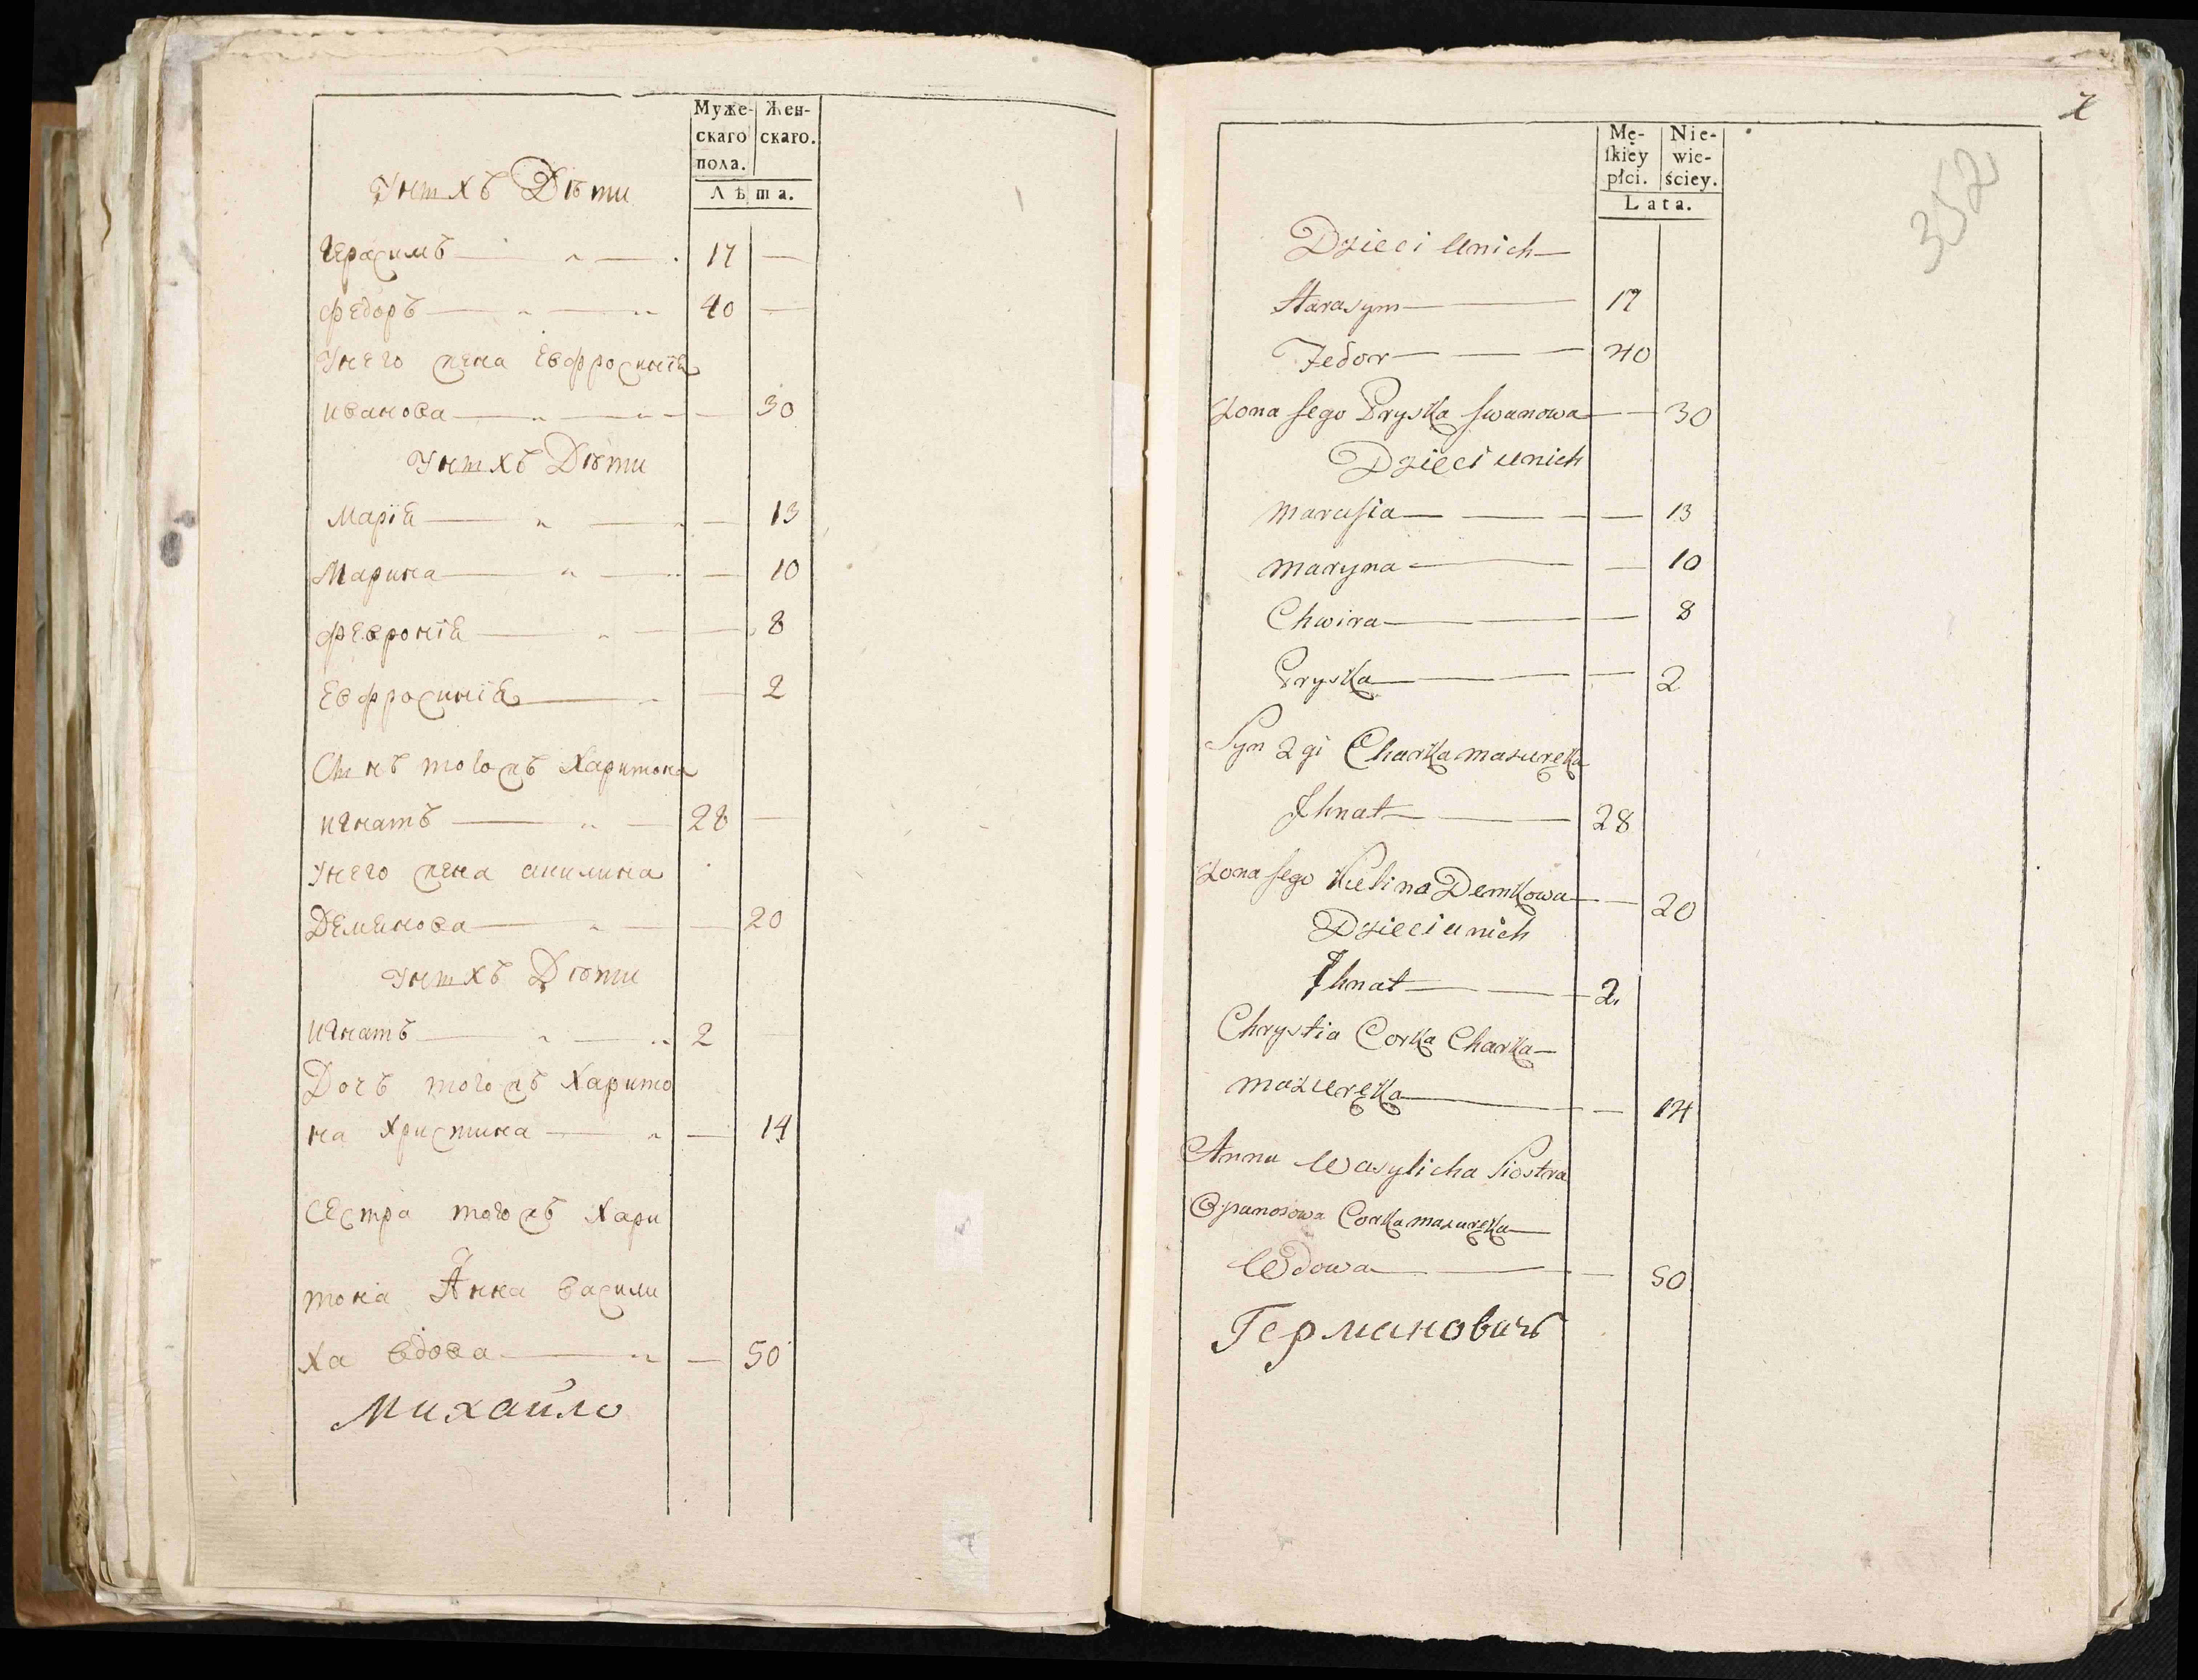 Муже- Жен-
скаго скаго.
пола.
Лѣта.
Унихъ Дѣти
Герасимъ 17 —
Федоръ 40 —
Унего жена Евфросинїя
Иванова — 30
Унихъ Дѣти
Марїя — 13
Марина — 10
Февронїя — 8
Евфросинїя — 2
Синъ тогожъ Харитона
Игнатъ 28 —
Унего жена Акилина
Демянова — 20
Унихъ Дѣти
Игнатъ 2 —
Дочъ тогожъ Харито
на Христина — 14
Сестра тогожъ Хари
тона Анна Васили
ха вдова — 50
Михайло
7
352
Mę- Nie-
skiey wie-
płci. ściey.
Lata.
Dzieci Unich
Harasym 17
Fedor 40
Zona Jego Pryska Jwanowa — 30
Dzieci unich
Marusia — 13
Maryna — 10
Chwira — 8
Pryska — 2
Syn 2gi Charka mazuręka
Jhnat 28
Zona Jego Kulina Demkowa — 20
Dzieci unich
Jhnat 2
Chrystia Corka Charka
mazuręka — 14
Anna Wasylicha Siostra
Opanosowa Corka mazuręka
Wdowa — 50
Германовичъ